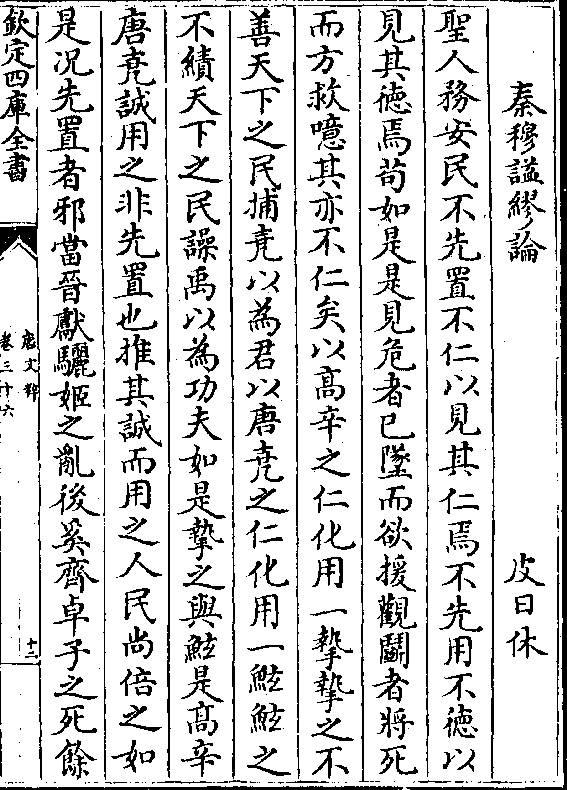 秦穆謚繆論　皮日休
聖人務安民不先置不仁以見其仁焉不先用不徳以
見其徳焉苟如是是見危者已墜而欲援觀鬬者將死
而方救噫其亦不仁矣以髙辛之仁化用一摯摯之不
善天下之民捕堯以為君以唐堯之仁化用一鮌鮌之
不績天下之民譟禹以為功夫如是摯之與鮌是髙辛
唐堯誠用之非先置也推其誠而用之人民尚倍之如
是况先置者邪當晉獻驪姬之亂後奚齊卓子之死餘
欽定四庫全書
唐文粹
卷三十六
十二